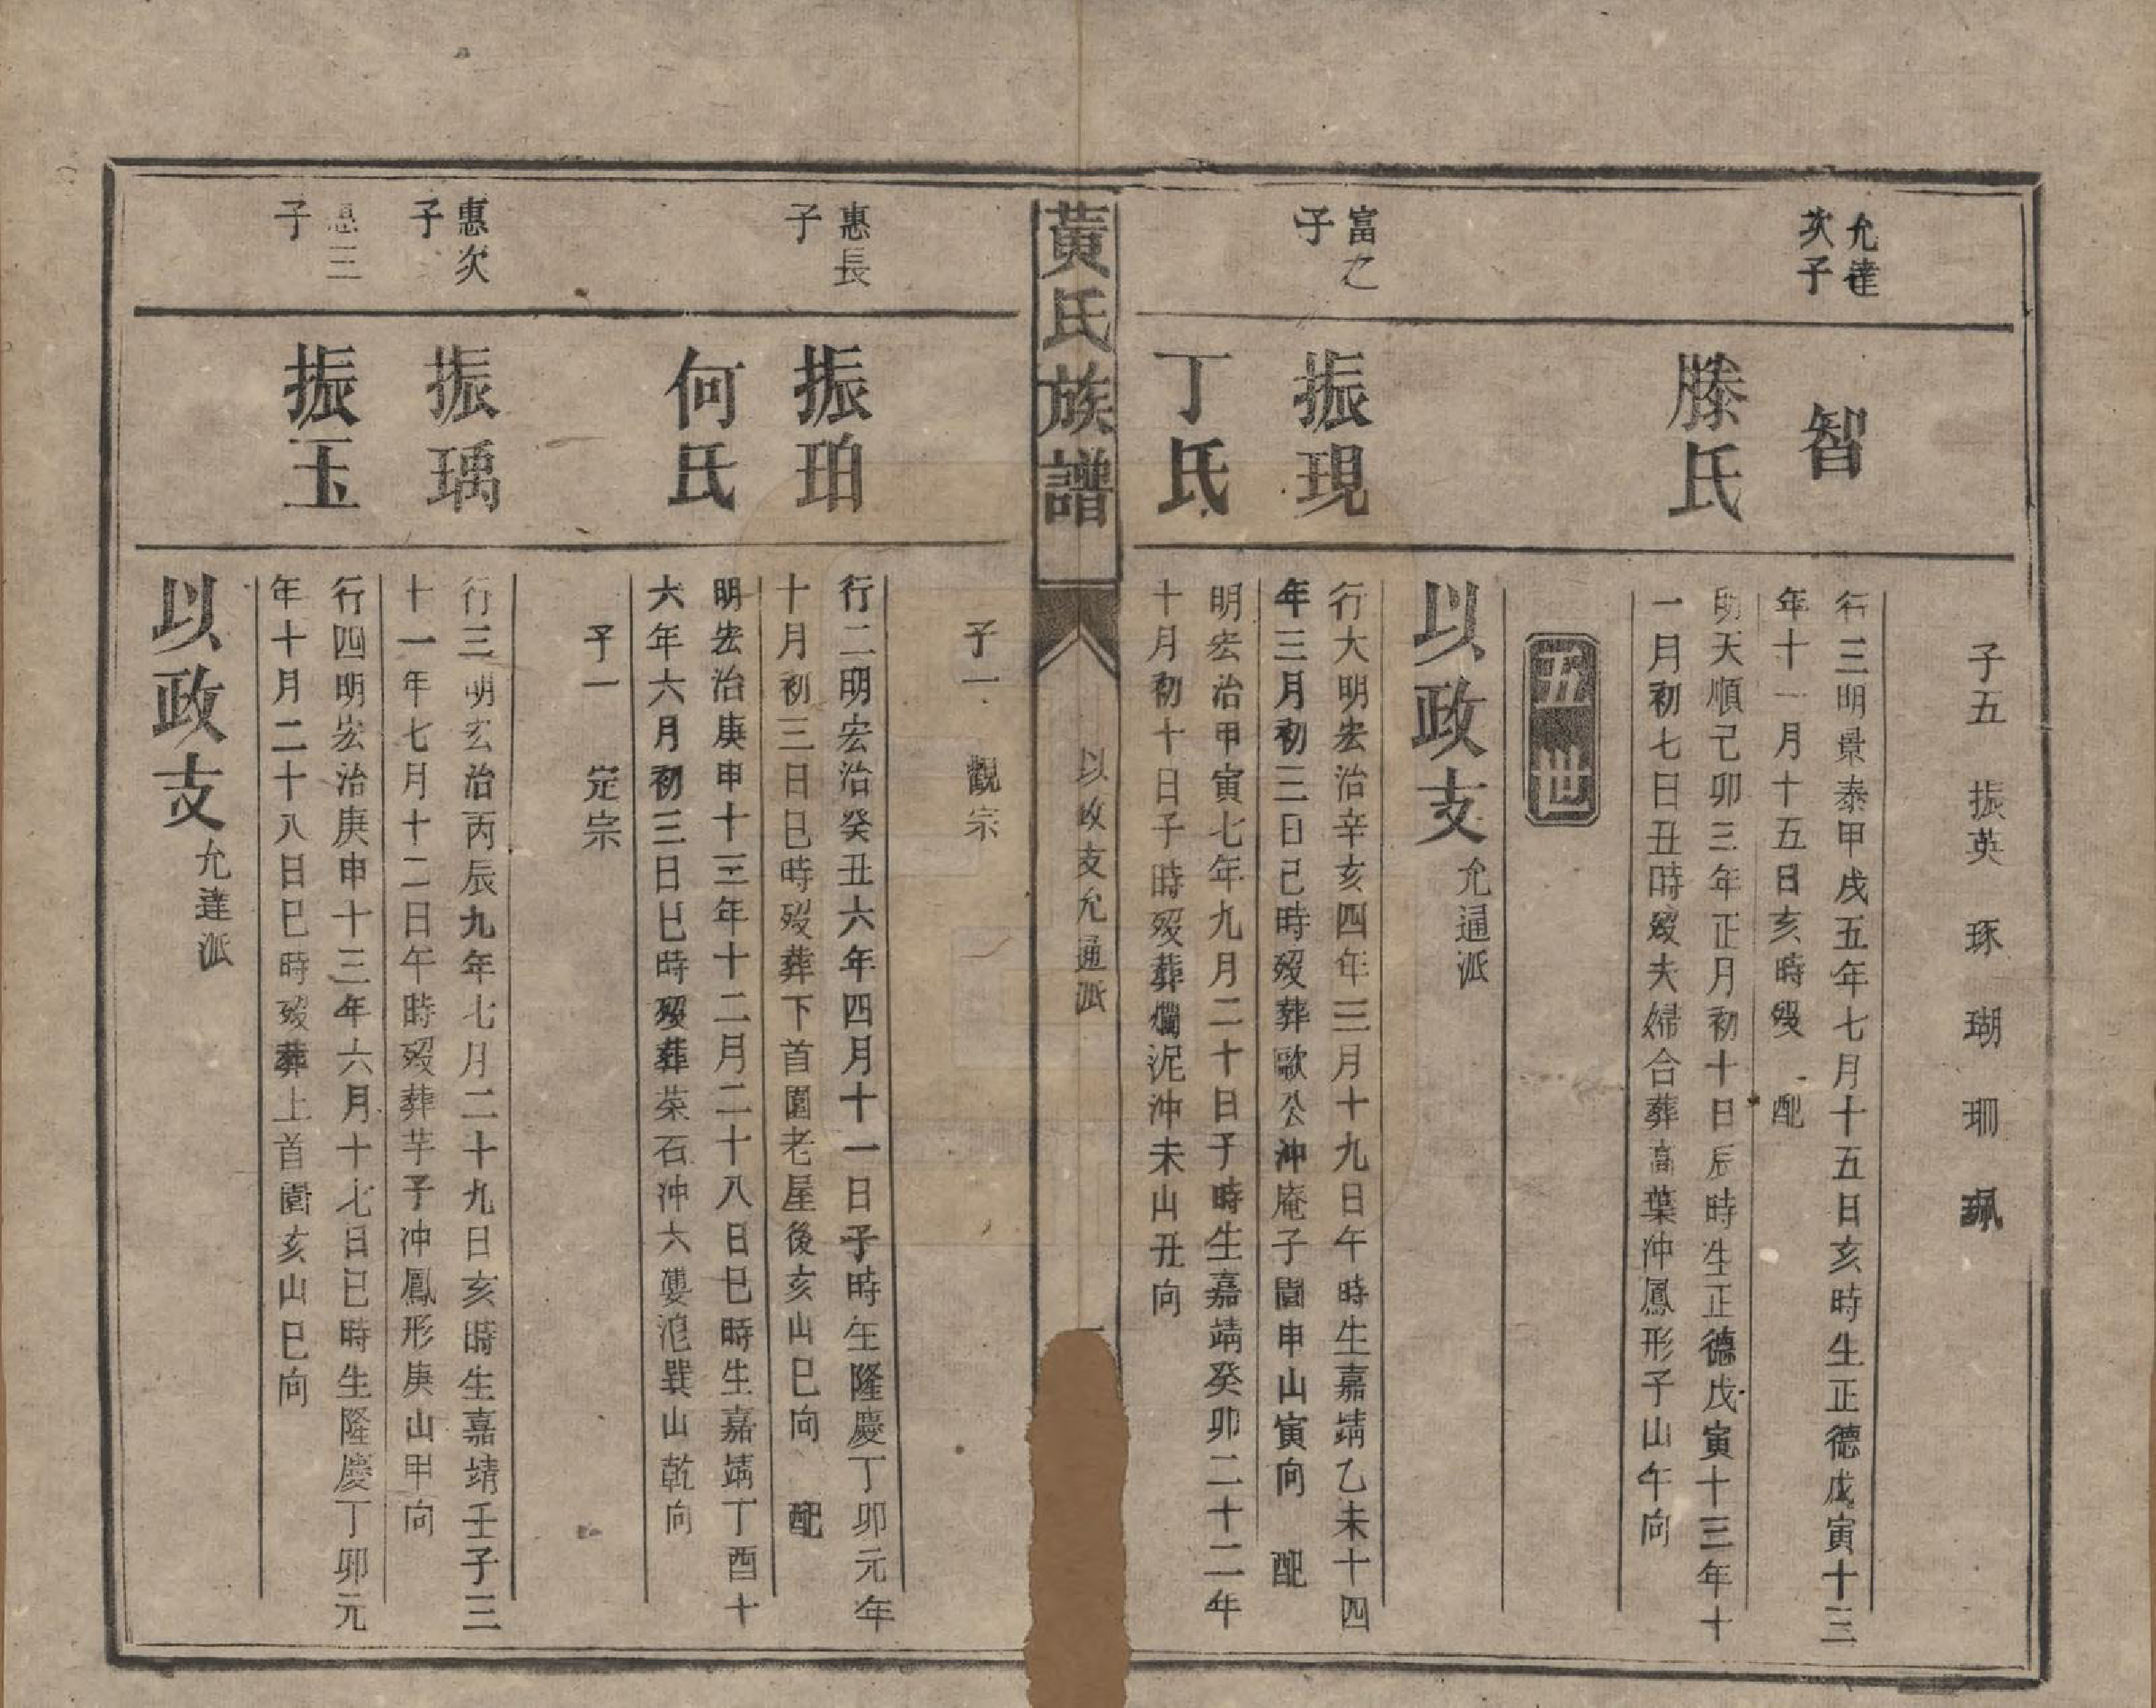 子五 振英 琢 瑚 珊 珮
允達次子
智
行三明景泰甲戌五年七月十五日亥時生正德戊寅十三
年十一月十五日亥時歿 配
滕氏
明天順己卯三年正月初十日辰時生正德戊寅十三年十
一月初七日丑時歿夫婦合葬高葉沖鳳形子山午向
五世
以政支允通派
富之子
振現
行大明宏治辛亥四年三月十九日午時生嘉靖乙未十四
年三月初三日巳時歿葬歌公沖庵子園申山寅向 配
丁氏
明宏治甲寅七年九月二十日子時生嘉靖癸卯二十二年
十月初十日子時歿葬爛泥沖未山丑向
黃氏族譜
以政支允通派
一
子一 觀宗
惠長子
振珀
行二明宏治癸丑六年四月十一日子時生隆慶丁卯元年
十月初三日巳時歿葬下首園老屋後亥山巳向 配
何氏
明宏治庚申十三年十二月二十八日巳時生嘉靖丁酉十
六年六月初三日巳時歿葬菜石沖六婁沱巽山乾向
子一 定宗
惠次子
振瑀
行三明宏治丙辰九年七月二十九日亥時生嘉靖壬子三
十一年七月十二日午時歿葬芋子沖鳳形庚山甲向
惠三子
振玉
行四明宏治庚申十三年六月十七日巳時生隆慶丁卯元
年十月二十八日巳時歿葬上首園亥山巳向
以政支允達派